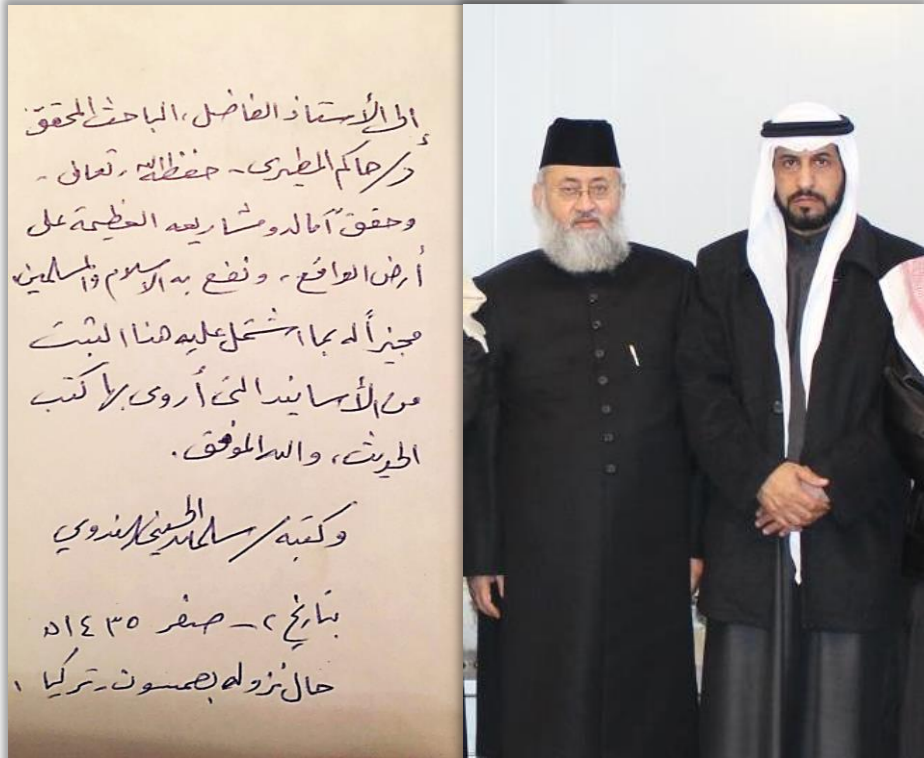 الى الأستاذ الفاضل، الباحث المحقق
د/ حاكم المطيرى - حفظه الله تعالى -
وحقق آماله ومشاريعه العظيمة على
أرض الواقع، ونفع به الإسلام والمسلمين
مجيزاً له بما اشتمل عليه هذا الثبت
من الأسانيد التى أروى بها كتب
الحديث، والله الموفق.
وكتبه/ سلمان الحسيني الندوي
بتاريخ ٢ - صفر ١٤٣٥ه
حال نزوله بصمسون - تركيا